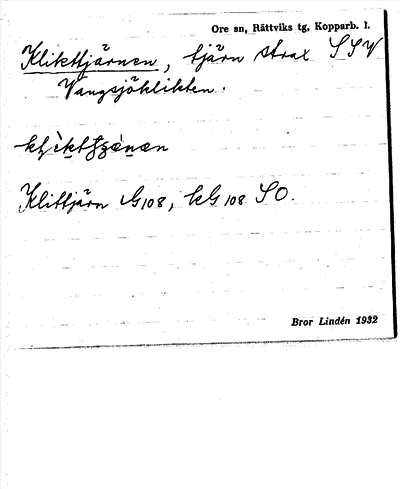 Ore sn, Rättviks tg, Kopparb. l.
Klikttjärnen, tjärn strax SSV
Vangsjöklikten.
Klittjärn G108, kG 108 SO.
Bror Lindén 1932